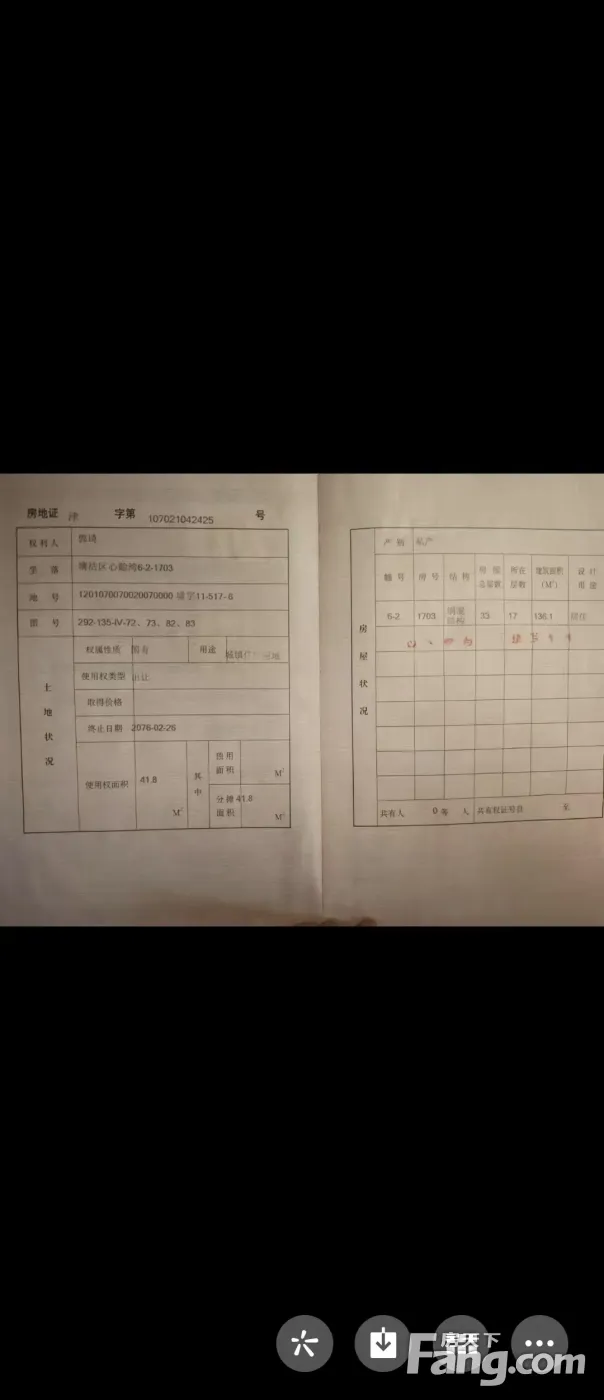 房地证 津 字第 107021042425 号
权利人
坐落 塘沽区心 6-2-1703
地号 1201070070020070000 塘字11-517-6
图号 292-135-IV-72、73、82、83
土地状况
权属性质 国有 用途 城镇
使用权类型 出让
取得价格
终止日期 2076-02-26
使用权面积 41.8 M²
其中
独用面积 M²
分摊面积 41.8 M²
房屋状况
产别 私产
幢号 房号 结构 房屋总层数 所在层数 建筑面积(M²) 设计用途
6-2 1703 钢混结构 33 17 136.1 居住
共有人 0 等 人 共有权证号自 至
房天下
Fang.com